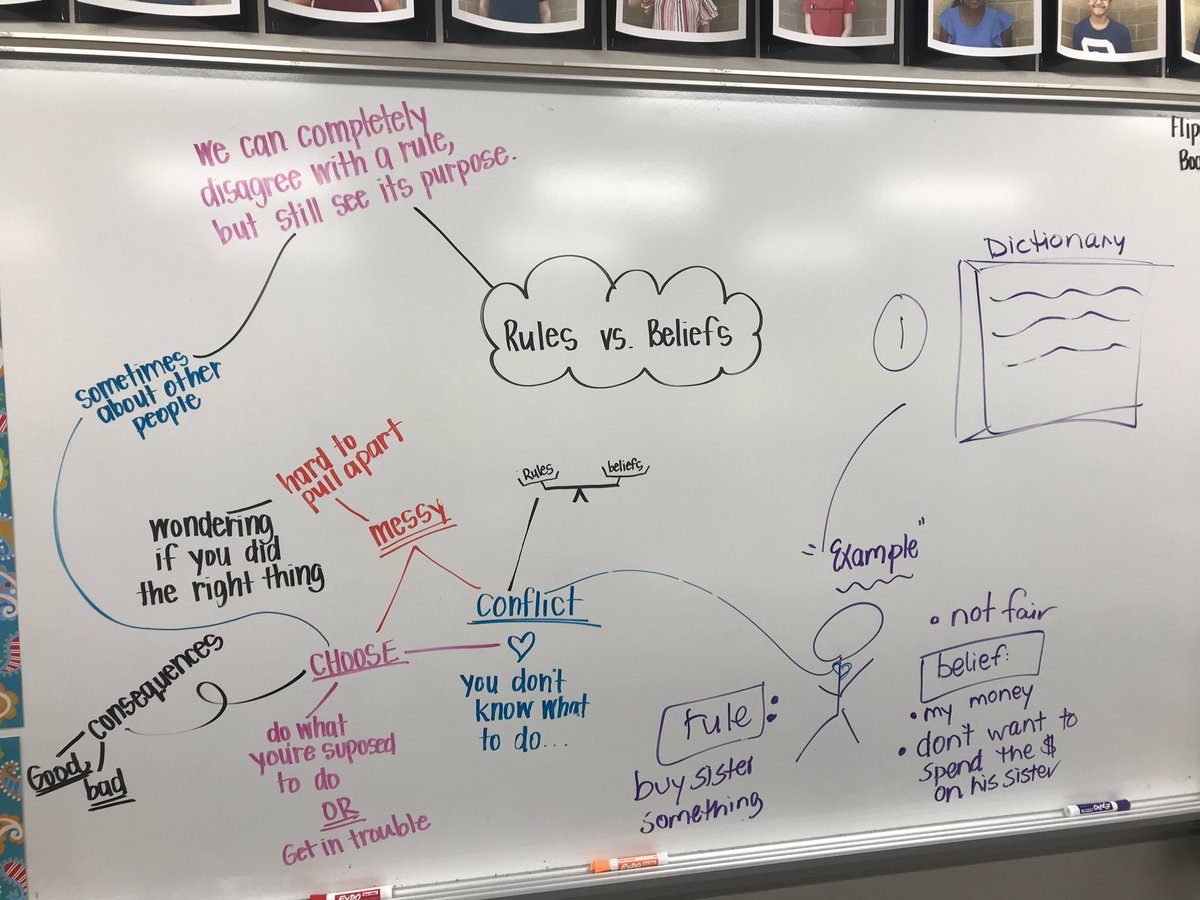 we can completely
disagree with a rule,
but still see its purpose.
Rules vs. Beliefs
sometimes
about other
people
hard to
pull apart
wondering
if you did
the right thing
messy
Rules
beliefs
conflict
you don't
know what
to do...
CHOOSE
do what
you're suposed
to do
OR
Get in trouble
consequences
Good,
bad
Flip
Dictionary
1
"Example"
rule:
buy sister
something
• not fair
belief:
• my money
• don't want to
spend the $
on his sister
EXPO
EXPO
EXPO